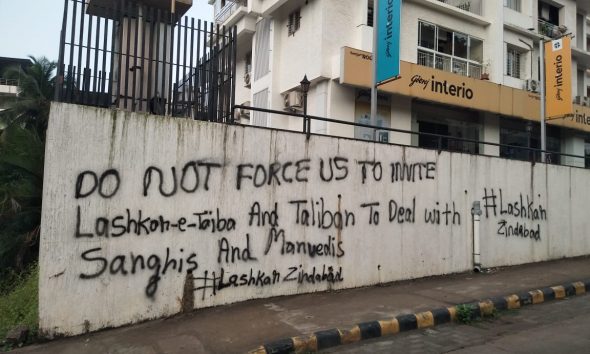 Godrej interio
Godrej interio
Godrej interio
DO NOT FORCE US TO INVITE
Lashkar-e-Taiba And Taliban To Deal with
Sanghis And Manvedis
#Lashkar Zindabad
#Lashkar
Zindabad